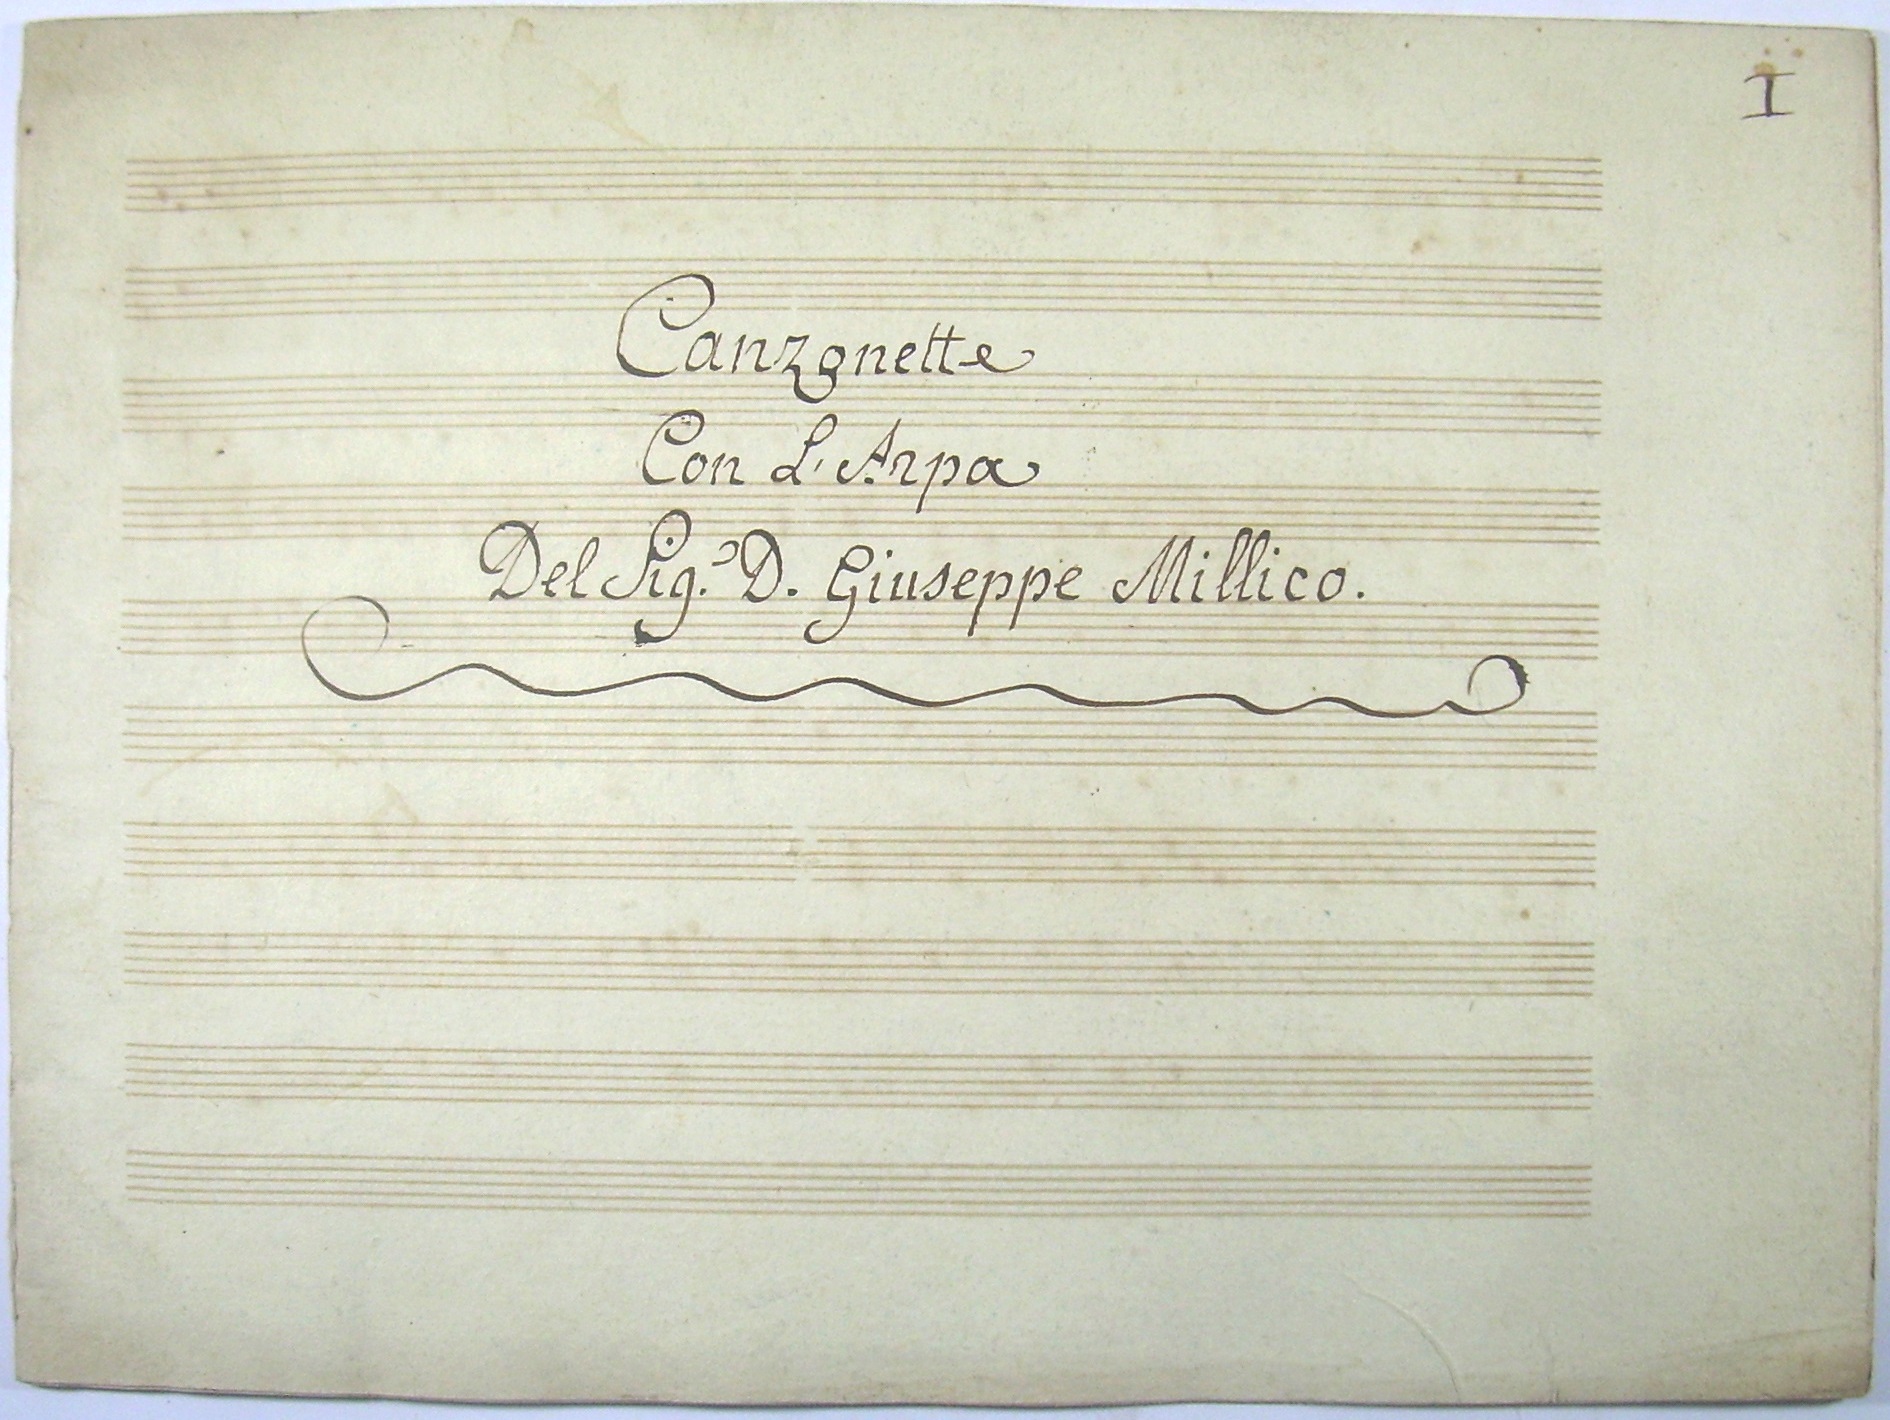 I
Canzonette
Con L'Arpa
Del Sig.r D. Giuseppe Millico.